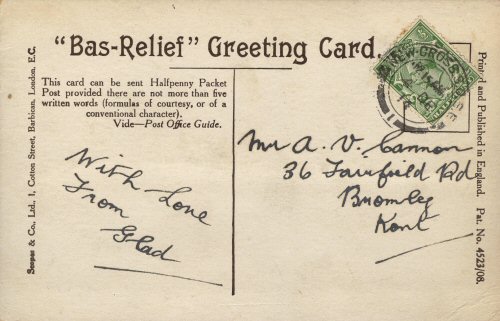 "Bas-Relief" Greeting Card.
This card can be sent Halfpenny Packet
Post provided there are not more than five
written words (formulas of courtesy, or of
a conventional character).
Vide—Post Office Guide.
With Love
From
Glad
Mr A. V. Cannon
36 Fairfield Rd
Bromley
Kent
NEW-CROSS
S.E.
Scopes & Co., Ltd., 1, Cotton Street, Barbican, London, E.C.
Printed and Published in England. Pat. No. 4523/08.